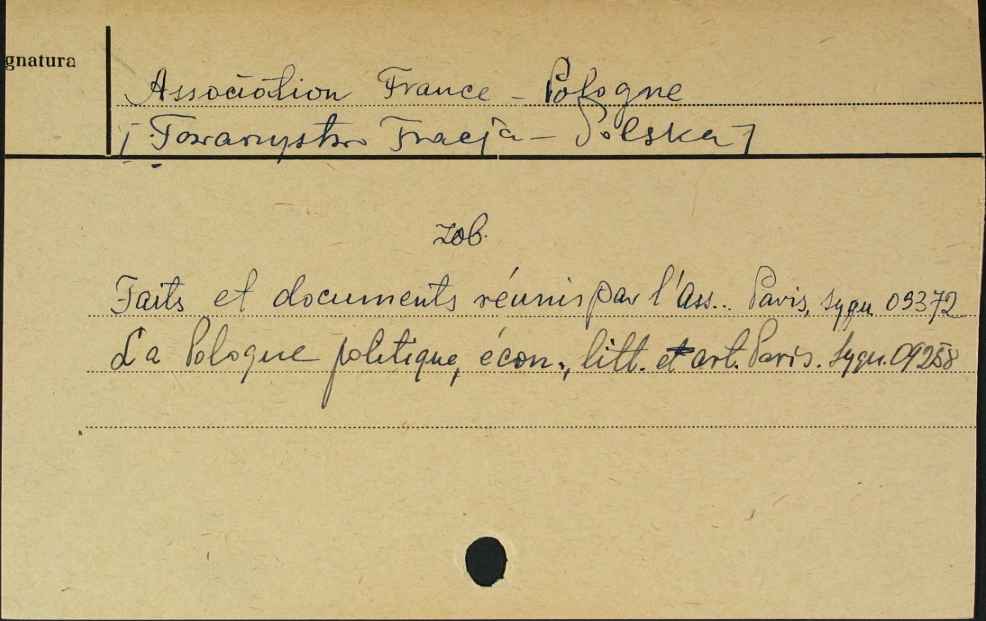 gnatura
Association France - Pologne
[Towarzystwo Francja - Polska]
zob.
Faits et documents réunis par l'Ass... Paris, sygn. 03372
La Pologne politique, écon., litt. et art. Paris. Sygn. 09258